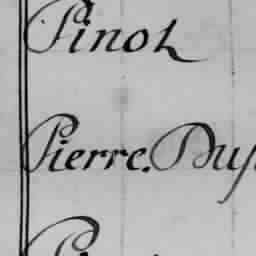 Pinot
Pierre. Duf